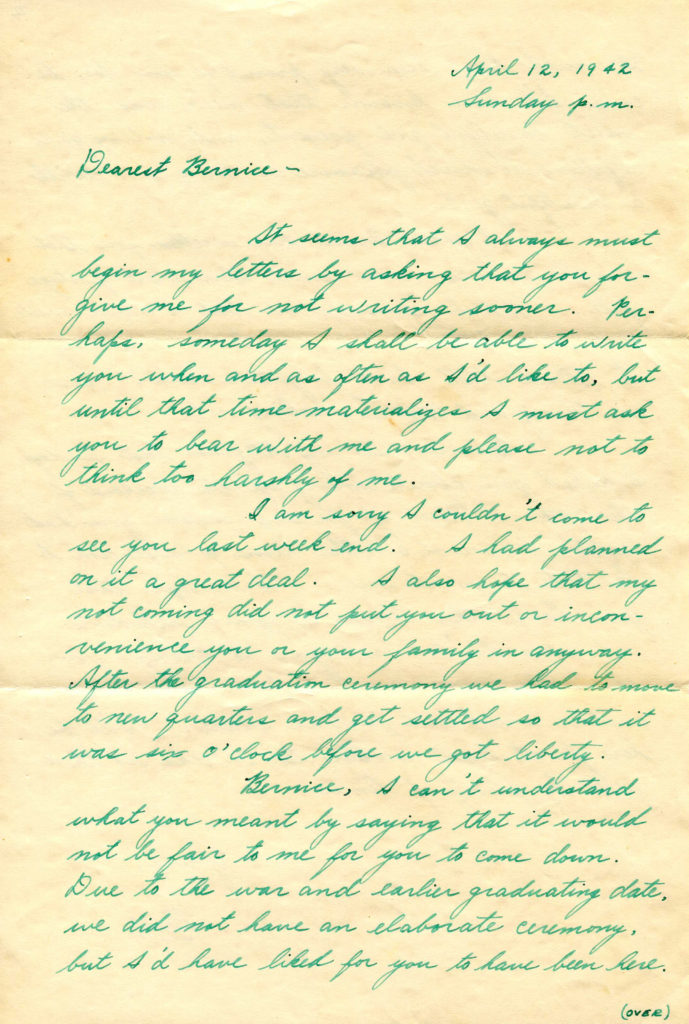 April 12, 1942
Sunday p.m.
Dearest Bernice –
It seems that I always must
begin my letters by asking that you for-
give me for not writing sooner. Per-
haps, someday I shall be able to write
you when and as often as I'd like to, but
until that time materializes I must ask
you to bear with me and please not to
think too harshly of me.
I am sorry I couldn't come to
see you last week end. I had planned
on it a great deal. I also hope that my
not coming did not put you out or incon-
venience you or your family in anyway.
After the graduation ceremony we had to move
to new quarters and get settled so that it
was six o'clock before we got liberty.
Bernice, I can't understand
what you meant by saying that it would
not be fair to me for you to come down.
Due to the war and earlier graduating date,
we did not have an elaborate ceremony,
but I'd have liked for you to have been here.
(OVER)